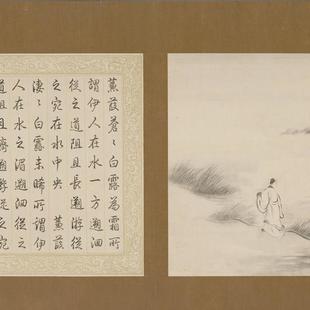 蒹葭蒼〻白露為霜所
謂伊人在水一方遡洄
從之道阻且長遡游從
之宛在水中央　蒹葭
淒〻白露未晞所謂伊
人在水之湄遡洄從之
道阻且躋遡游從之宛